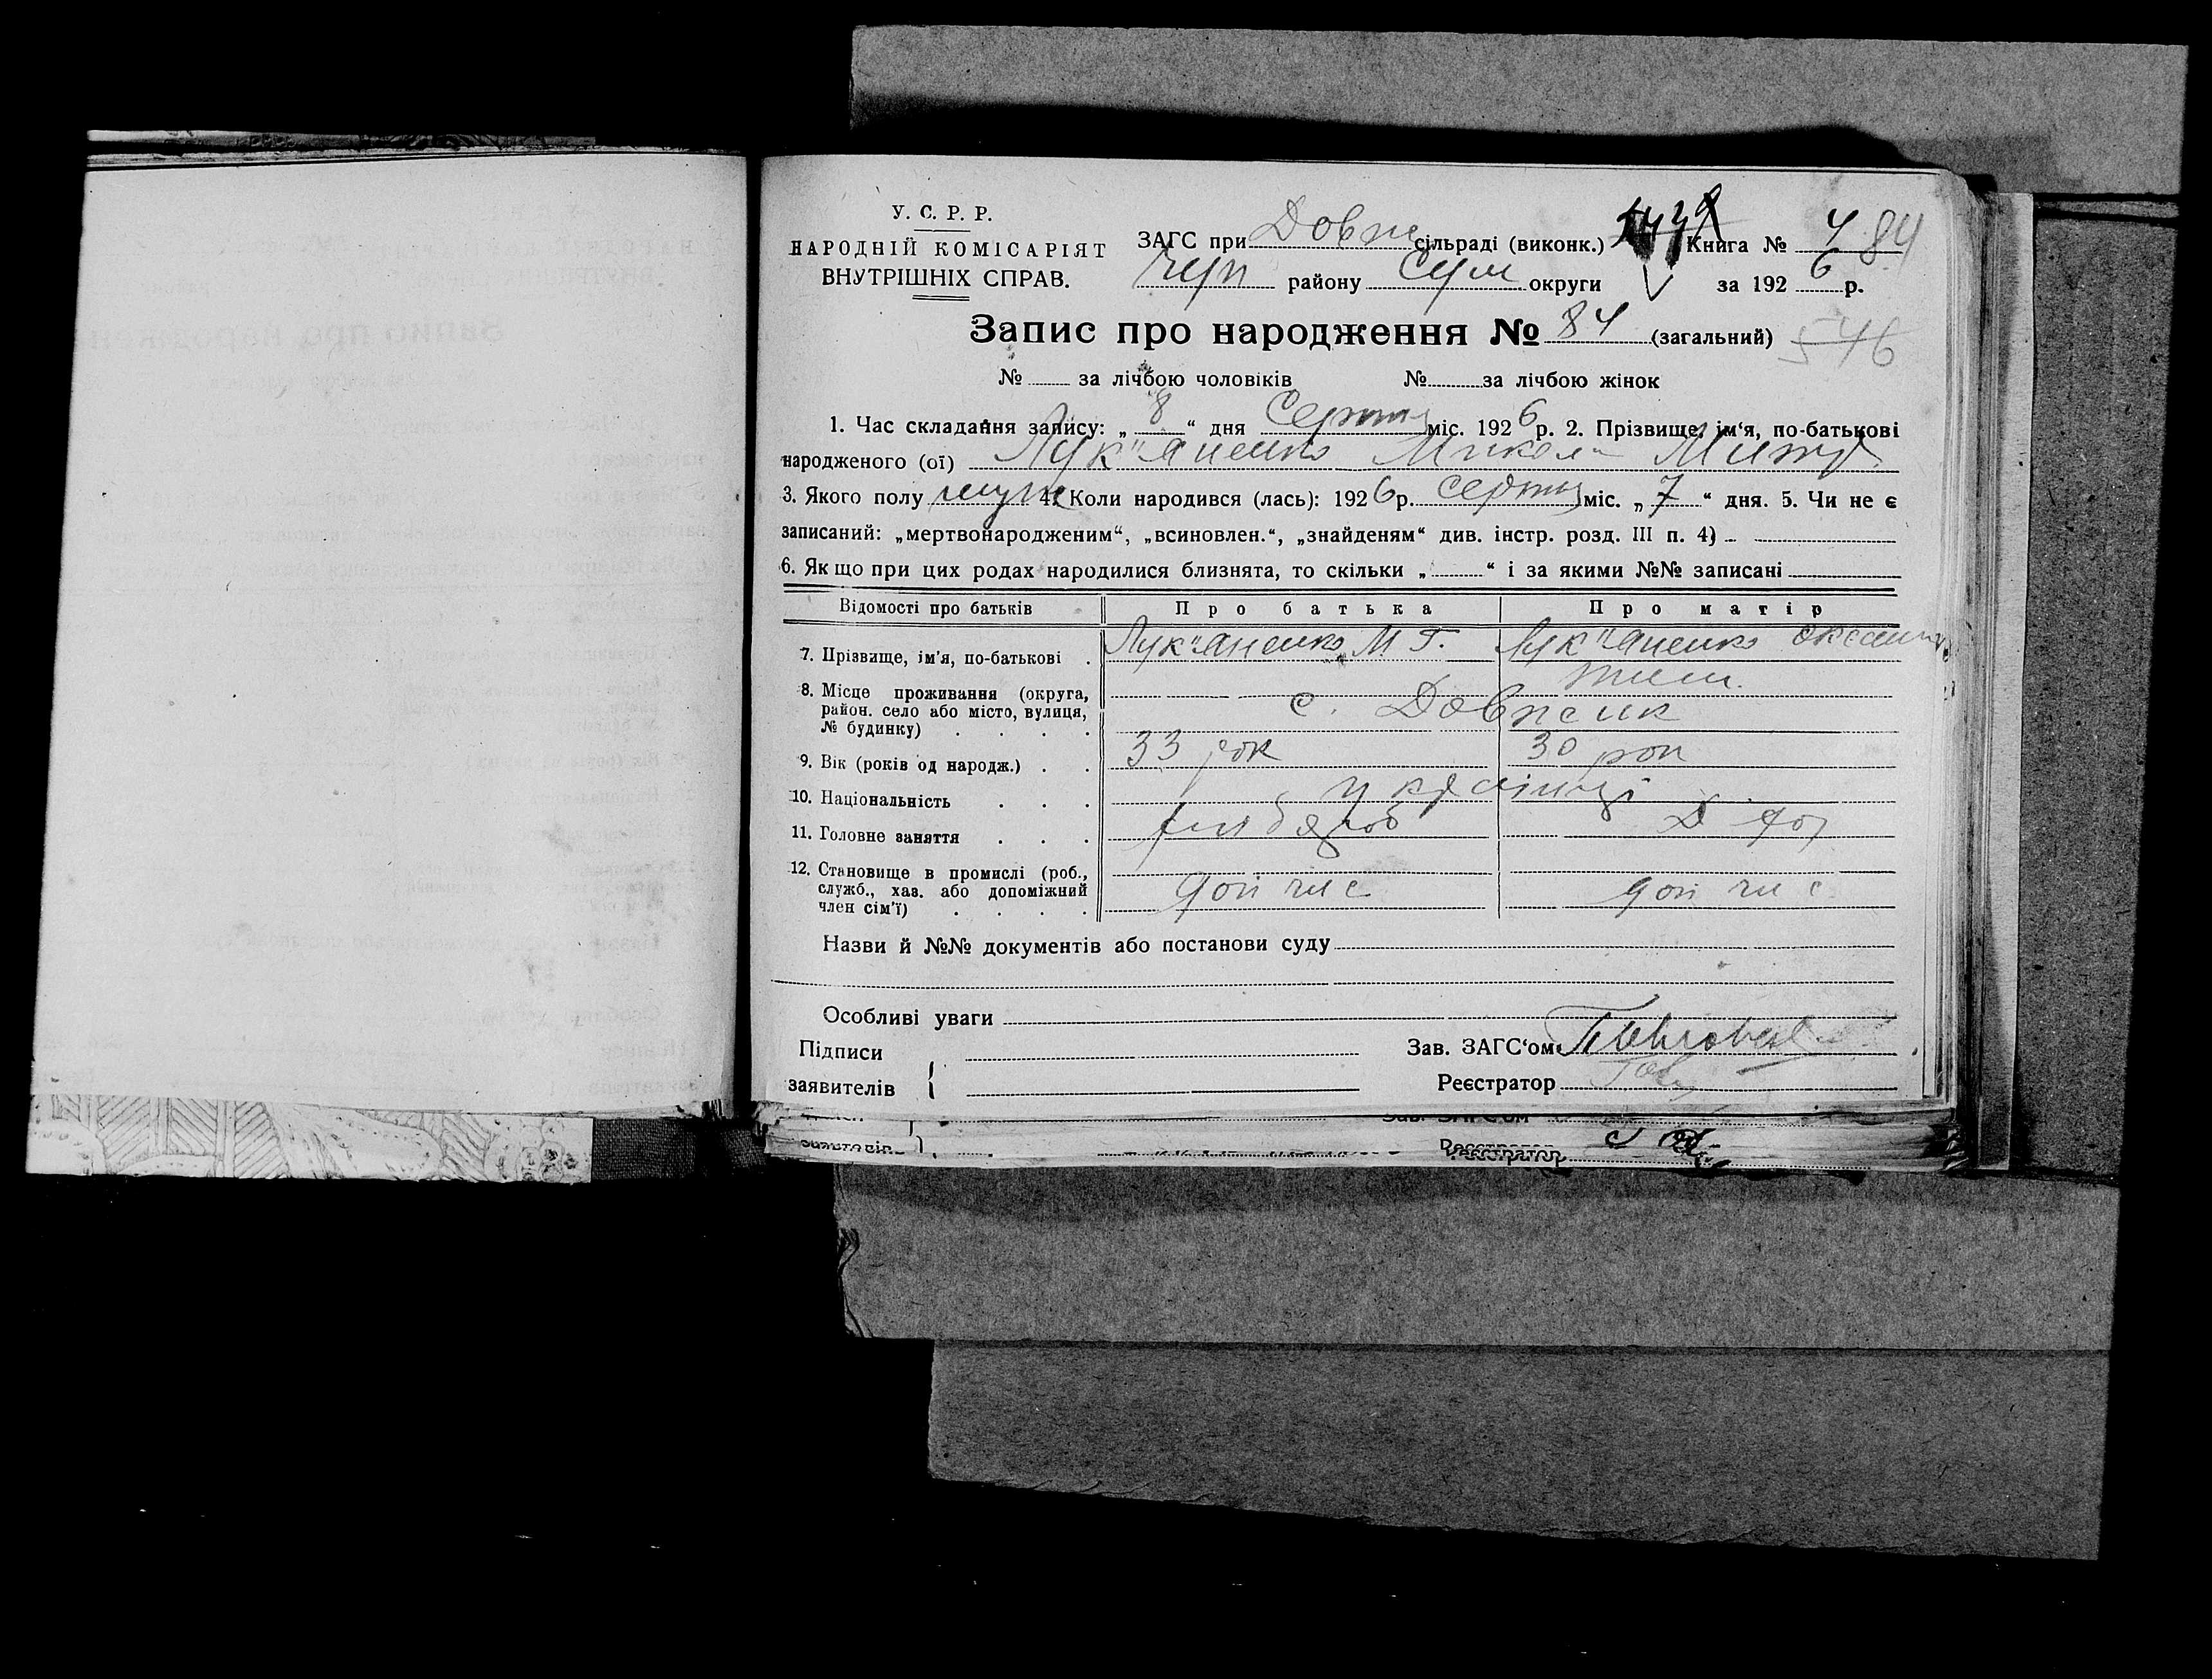 У. С. Р. Р.
НАРОДНІЙ КОМІСАРІЯТ
ВНУТРІШНІХ СПРАВ.
ЗАГС при Довж сільраді (виконк.) Книга № 4 84
район​у Сум округи за 192 6 р.
Запис про народження № 84 (загальний) 546
№ за лічбою чоловіків № за лічбою жінок
1. Час складання запису: „ 8 “ дня Серпня міс. 192 6 р. 2. Прізвище, ім‘я, по-батькові
народженого (ої) Лук"яненко Микола
3. Якого полу муж 4. Коли народився (лась): 192 6 р. серпня міс. „ 7 “ дня. 5. Чи не є
записаний: „мертвонародженим“, „всиновлен.“, „знайденям“ див. інстр. розд. III п. 4)
6. Якщо при цих родах народилися близнята, то скільки „ “ і за якими №№ записані
Відомості про батьків Про батька Про матір
7. Прізвище, ім‘я, по-батькові Лук"яненко М Г. Лук"яненко
8. Місце проживання (округа,
район. село або місто, вулиця,
№ будинку)
с. Довжик
9. Вік (років од народж.) 33 рок 30 рок
10. Національність українці
11. Головне заняття
12. Становище в промислі (роб.,
служб., хаз. або допоміжний
член сім‘ї)
доп чл с доп чл с
Назви й №№ документів або постанови суду
Особливі уваги
Підписи Зав. ЗАГС‘ом
заявителів { Реєстратор
Зав. ЗАГС‘ом
заявителів Реєстратор